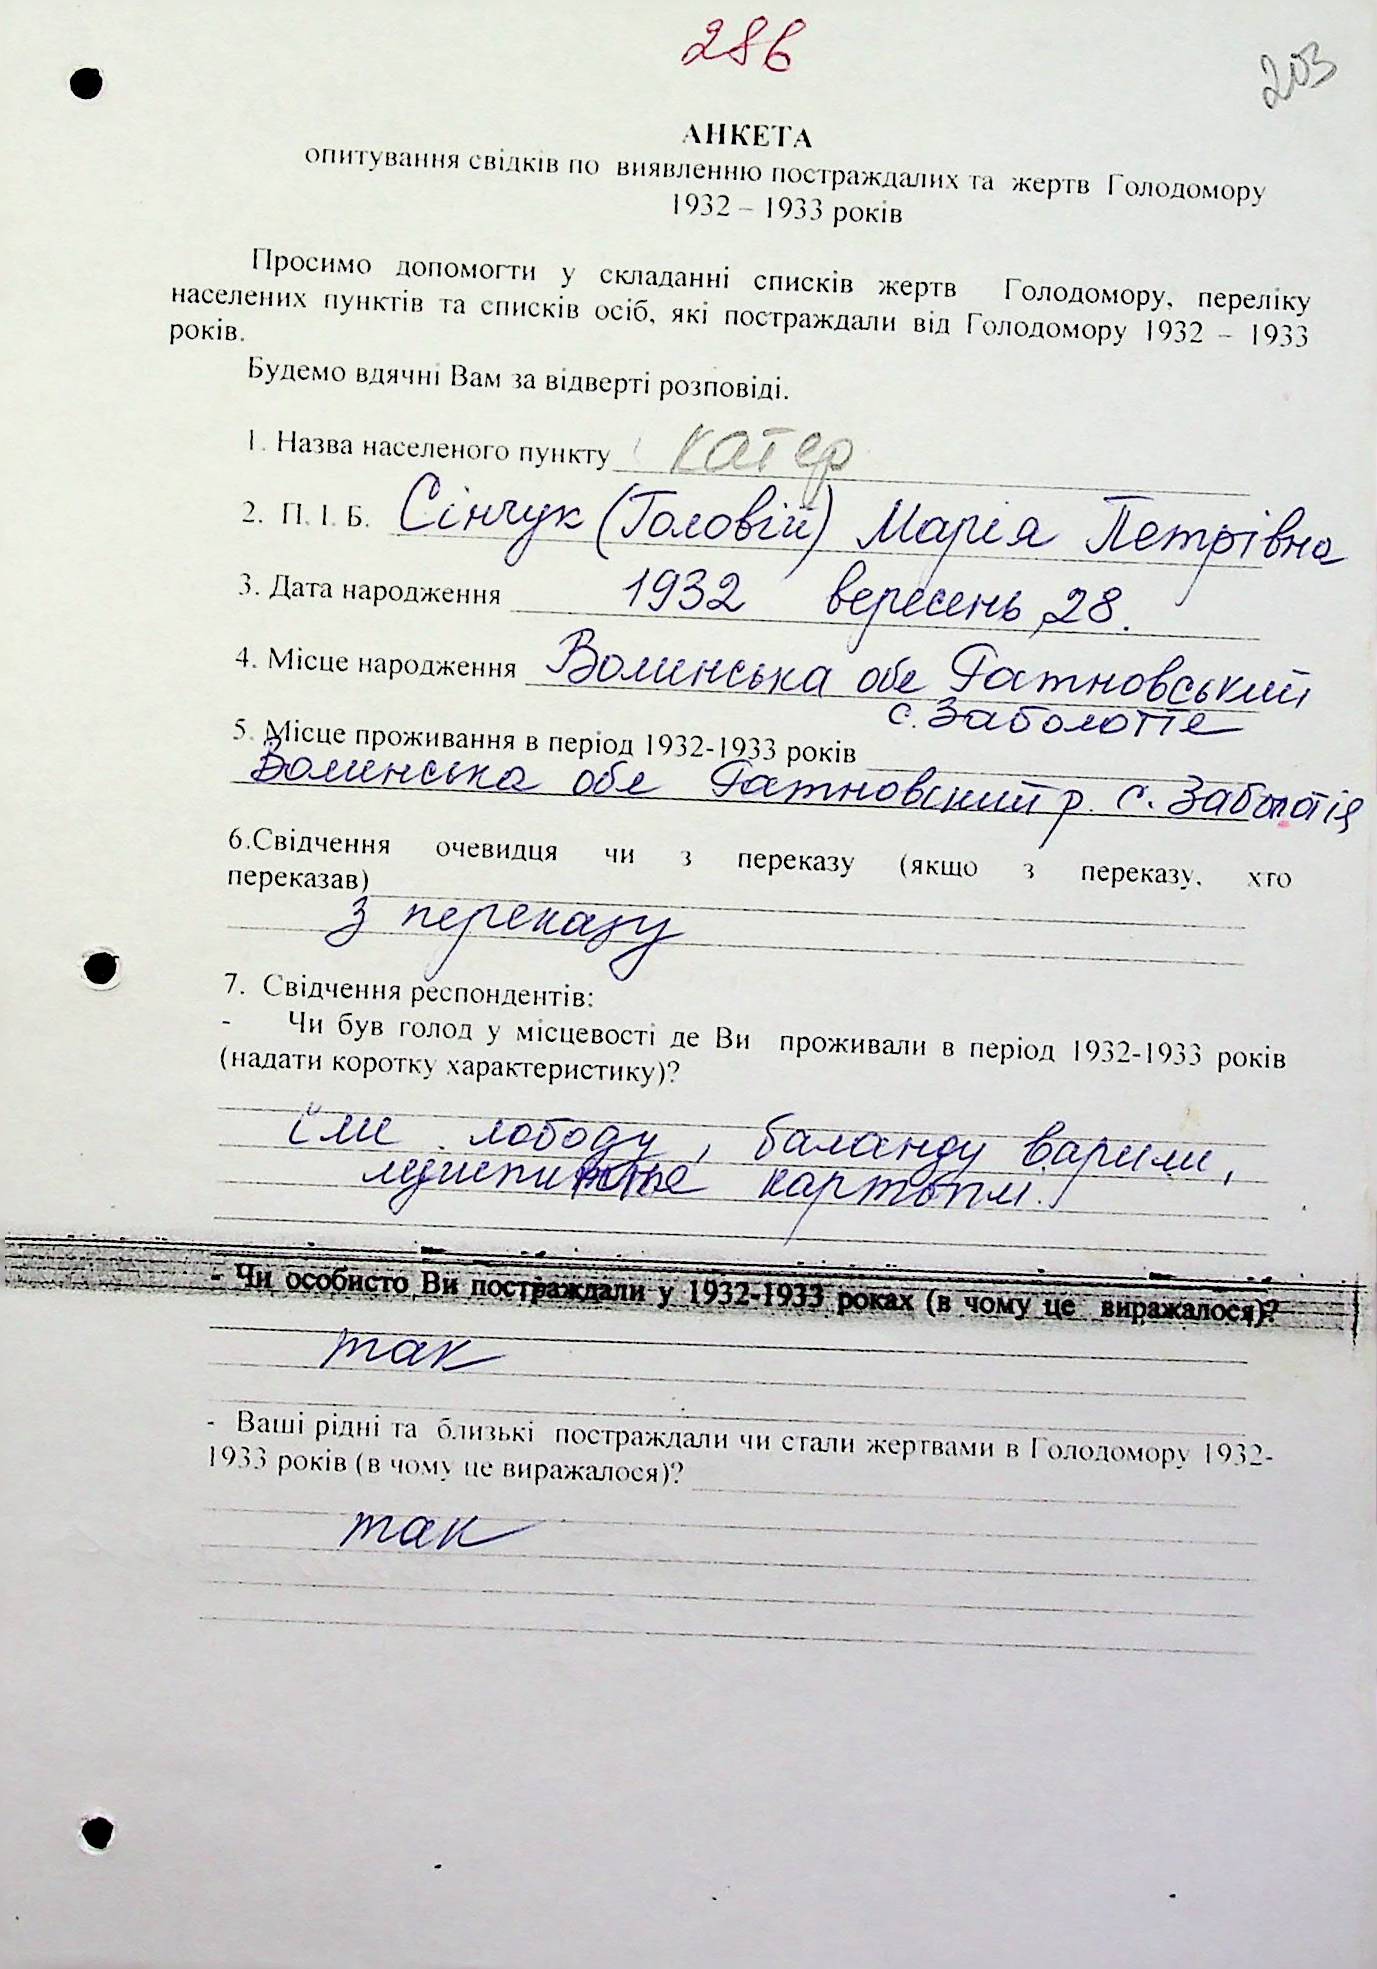 286
203
АНКЕТА
опитування свідків по виявленню постраждалих та жертв Голодомору
1932 – 1933 років
Просимо допомогти у складанні списків жертв Голодомору, переліку
населених пунктів та списків осіб, які постраждали від Голодомору 1932 – 1933
років.
Будемо вдячні Вам за відверті розповіді.
1. Назва населеного пункту катер
2. П. І. Б. Сінчук (Головій) Марія Петрівна
3. Дата народження 1932 вересень 28.
4. Місце народження Волинська обл Ратновський
с. Заболоття
5. Місце проживання в період 1932-1933 років
Волинська обл Ратновский р. с. Заболотія
6.Свідчення очевидця чи з переказу (якщо з переказу, хто
переказав)
З переказу
7. Свідчення респондентів:
- Чи був голод у місцевості де Ви проживали в період 1932-1933 років
(надати коротку характеристику)?
їли лободу, баланду варили,
картоплі.
- Чи особисто Ви постраждали у 1932-1933 роках (в чому це виражалося)?
так
- Ваші рідні та близькі постраждали чи стали жертвами в Голодомору 1932-
1933 років (в чому це виражалося)?
так